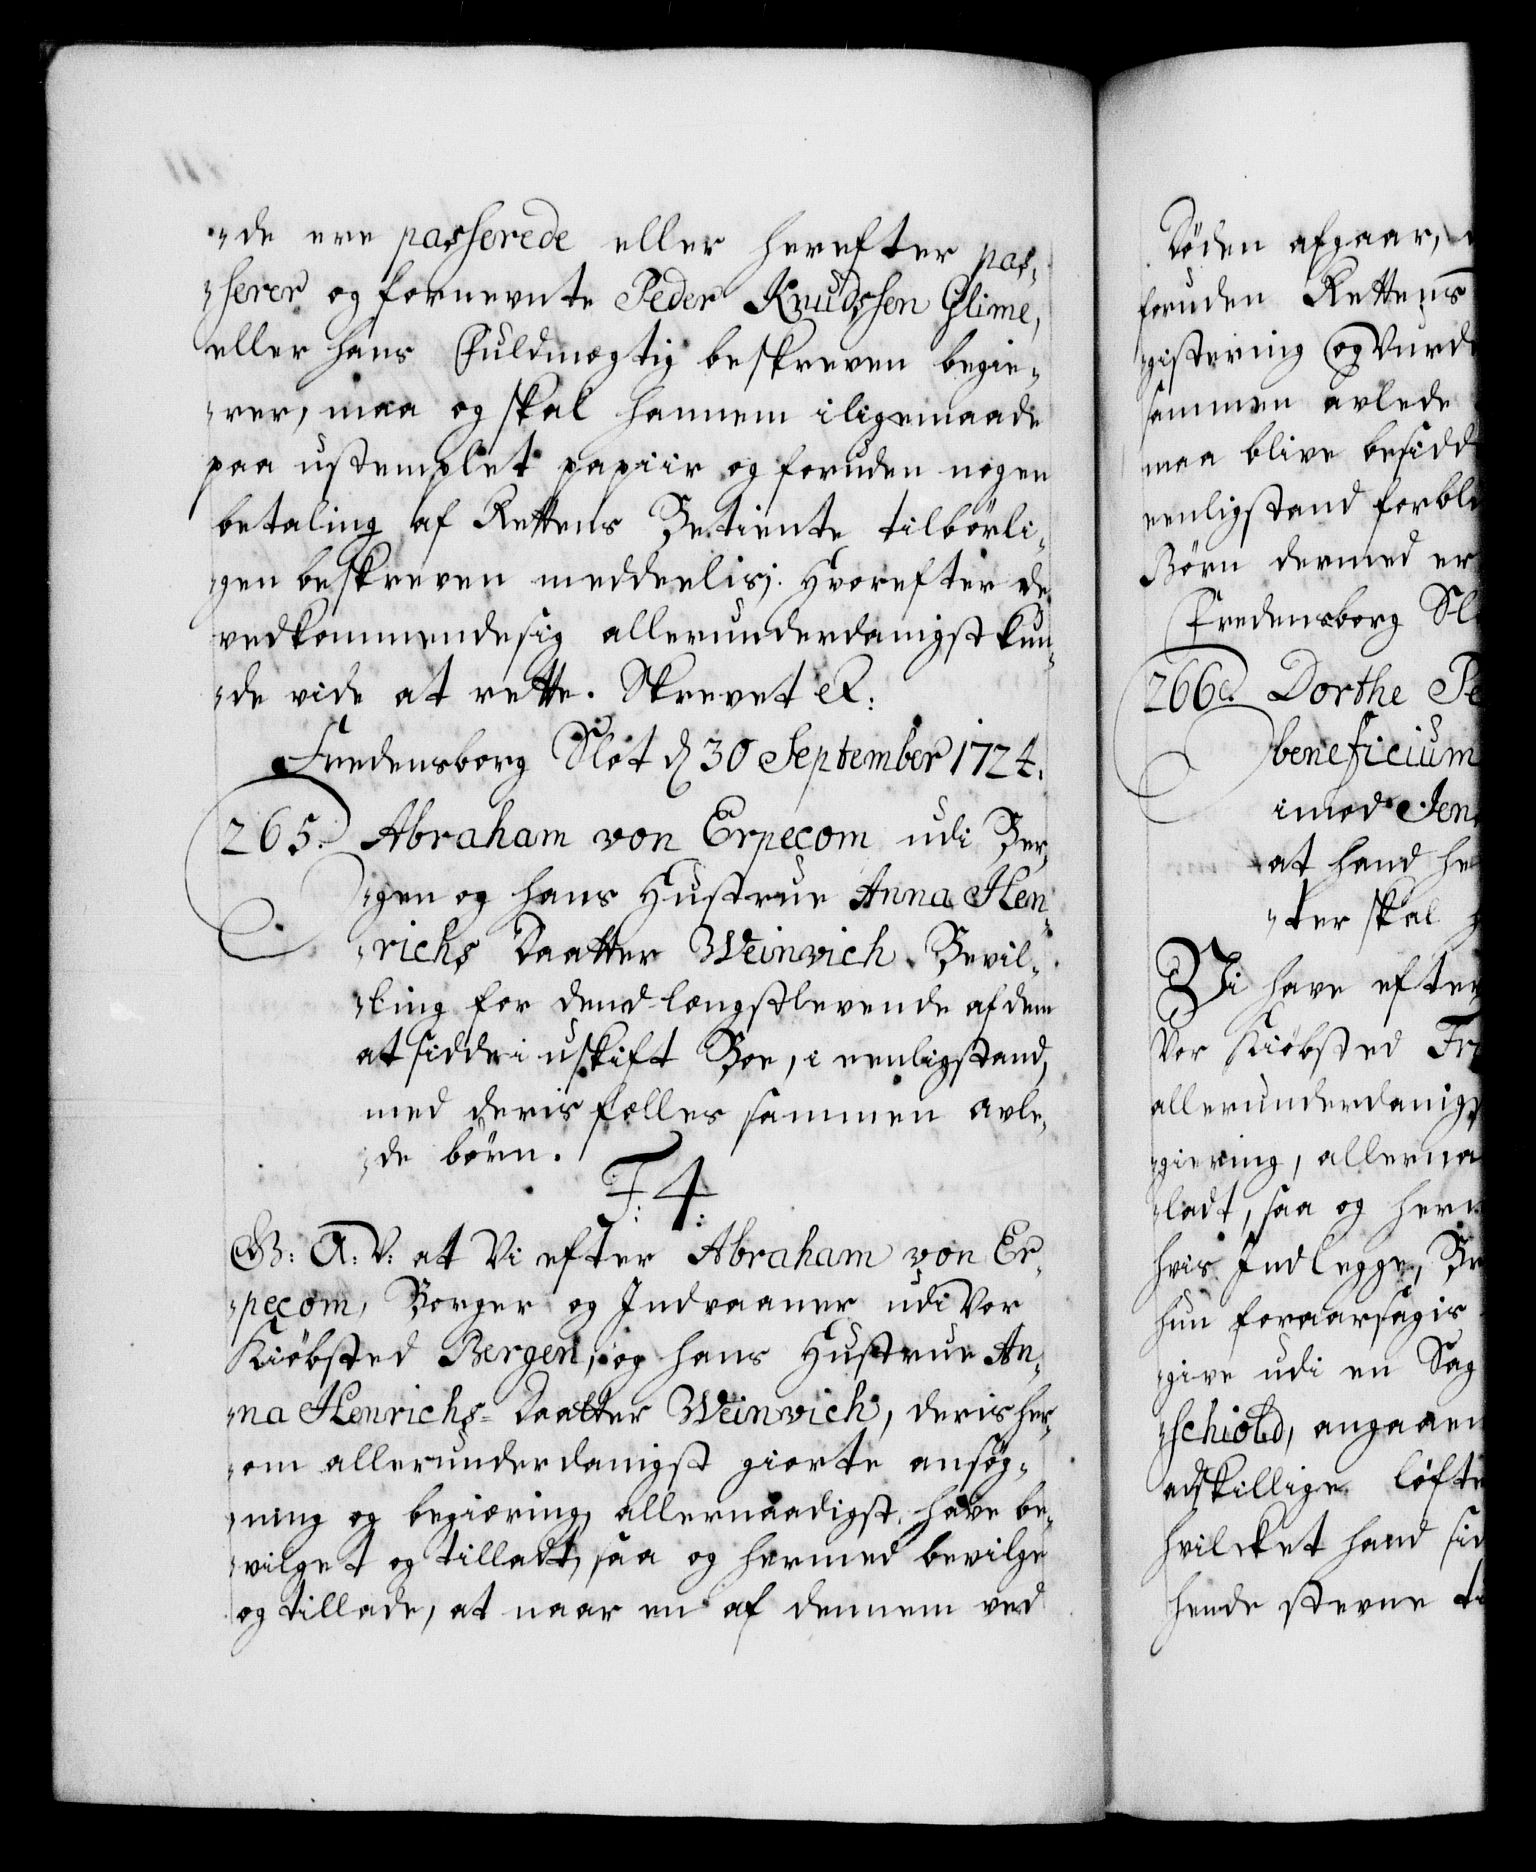 -de ere passerede eller herefter pas-
-serer og fornevnte Peder Knudssen Glime,
eller hans Fuldmegtig beskreven begie-
-rer, maa og skal hannem iligemaade
paa ustemplet papiir og foruden nogen
betaling af Rettens Betiente tilbørli-
-gen beskreven meddeelis. Hvorefter de
vedkommende sig allerunderdanigst kun-
-de vide at rette. Skrevet &.
Fredensborg Slot d 30 September 1724.
265. Abraham von Erpecom udi Ber-
-gen og hans Hustrue Anna Hen-
-richs Daatter Weinwich Bevil-
-ling for dend længstlevende af dem
at sidde i uskift Boe, i eenligstand,
med deris felles sammen avle-
-de børn.
F: 4:
G: A: V: at Vi efter Abraham von Er-
-pecom, Borger og Indvaaner udi Vor
Kiøbsted Bergen, og hans Hustrue An-
-na Henrichs-Daatter Weinwich, deris her-
-om allerunderdanigst giorte ansøg-
-ning og begiæring, allernaadigst have be-
-vilget og tilladt, saa og hermed bevilge
og tillade, at naar en af dennem ved
Døden afgaar,
foruden Rettens
-gistering og Vurd
sammen avlede
maa blive besidd
eenligstand forbl
Børn dermed er
Fredensborg Sl
266. Dorthe Pe
beneficium
imod Jen
at hand he
-ter skal
Vi have efter
Vor Kiøbsted Fr
allerunderdanigs
-giering, allerna
-ladt, saa og her
hvis Indlegge, Br
hun foraarsagis
-give udi en Sag
-schiold, angaaen
adskillige løfte
hvilcket hand sid
hende stevne ti